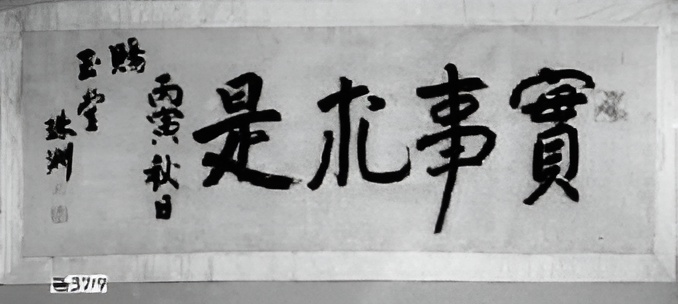 實事求是
丙寅秋日
賜
玉堂
珠淵
3719